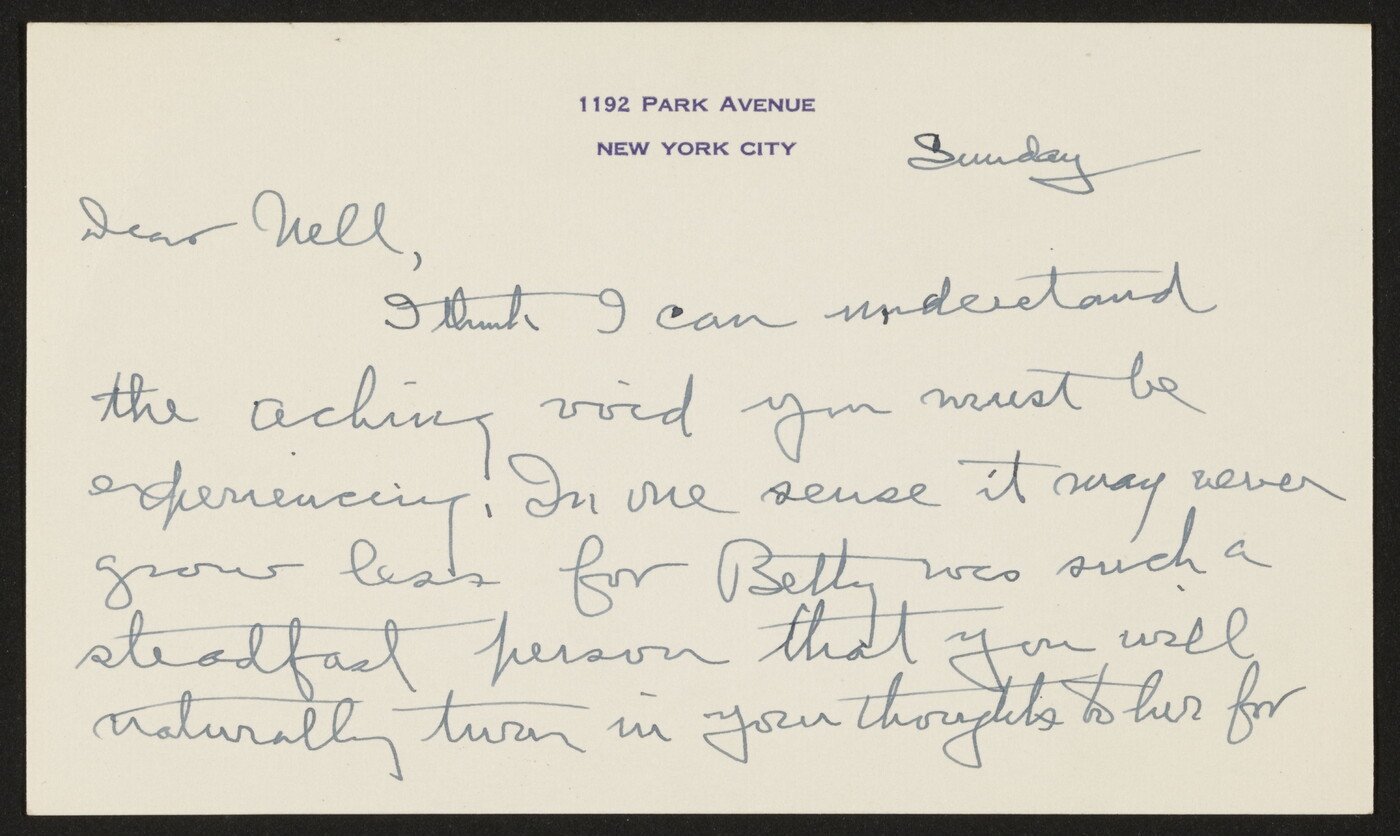 1192 PARK AVENUE
NEW YORK CITY
Sunday
Dear Nell,
I think I can understand
the aching void you must be
experiencing. In one sense it may never
grow less for Betty was such a
steadfast person that you will
naturally turn in your thoughts to her for